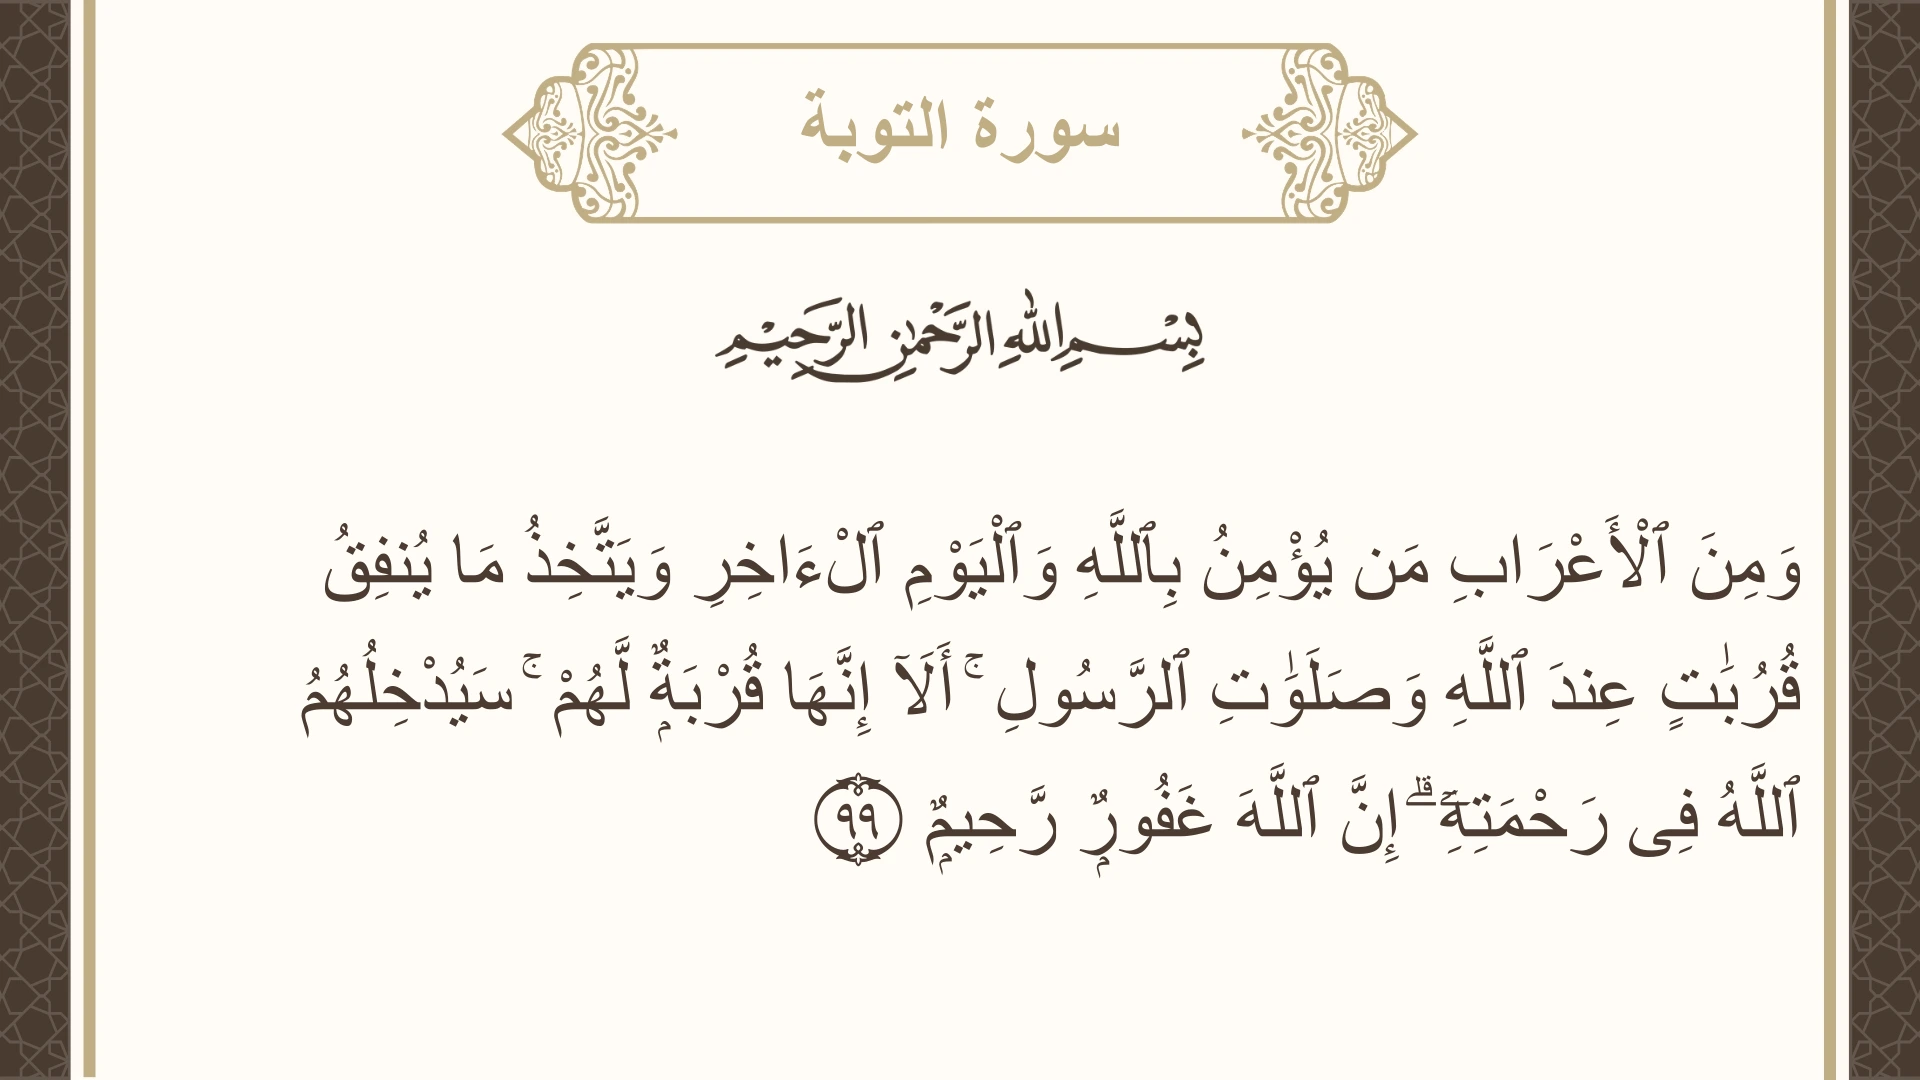 سورة التوبة
بِسْمِ اللهِ الرَّحْمٰنِ الرَّحِيْمِ
وَمِنَ ٱلْأَعْرَابِ مَن يُؤْمِنُ بِٱللَّهِ وَٱلْيَوْمِ ٱلْءَاخِرِ وَيَتَّخِذُ مَا يُنفِقُ
قُرُبَٰتٍ عِندَ ٱللَّهِ وَصَلَوَٰتِ ٱلرَّسُولِ ۚ أَلَآ إِنَّهَا قُرْبَةٌۭ لَّهُمْ ۚ سَيُدْخِلُهُمُ
ٱللَّهُ فِى رَحْمَتِهِۦٓ ۗ إِنَّ ٱللَّهَ غَفُورٌۭ رَّحِيمٌۭ ٩٩